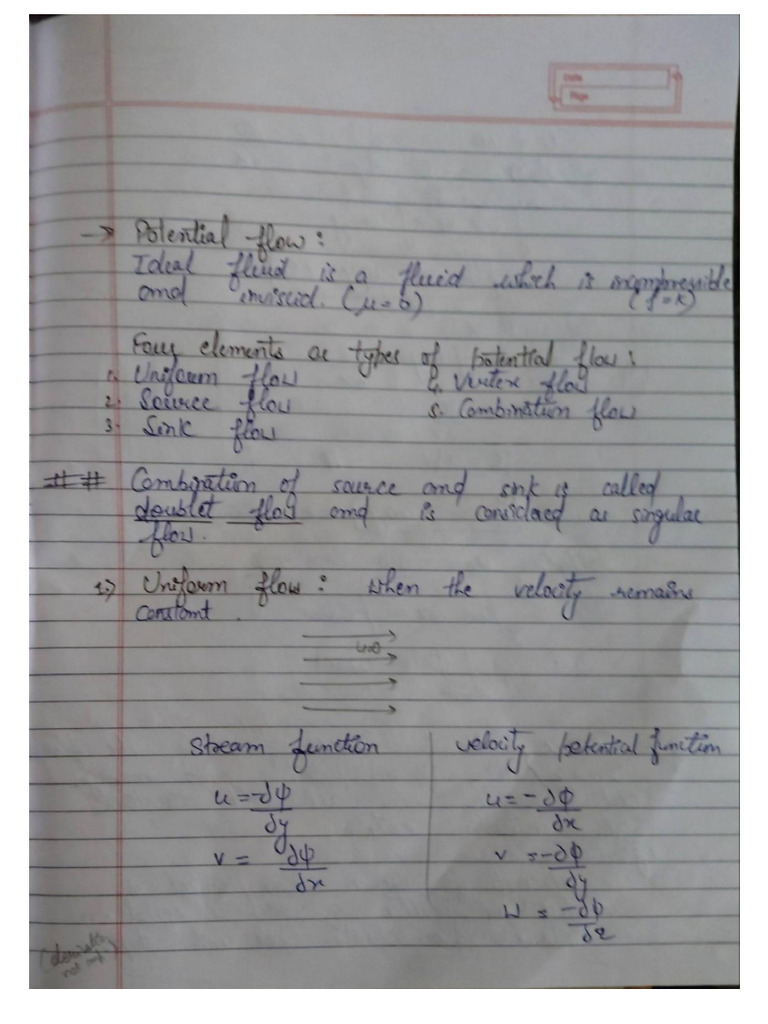 Date
Page
→ Potential flow :
Ideal fluid is a fluid which is incompressible
and inviscid. (μ=0) (ρ=k)
Four elements or types of potential flow :
1. Uniform flow 4. Vortex flow
2. Source flow 5. Combination flow
3. Sink flow
## Combination of source and sink is called
doublet flow and is considered as singular
flow.
1.) Uniform flow : When the velocity remains
constant.
Stream function velocity potential function
u = -∂ψ/∂y u = -∂φ/∂x
v = ∂ψ/∂x v = -∂φ/∂y
w = -∂φ/∂z